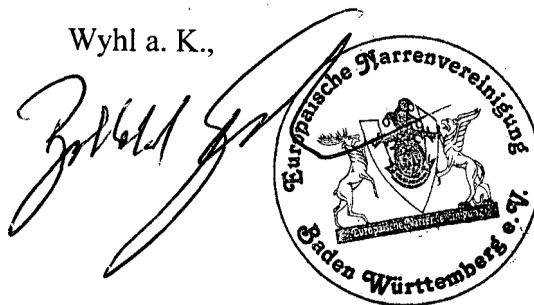 Wyhl a. K.,
Europäische Narrenvereinigung
Europäische Narrenvereinigung
Baden Württemberg e. V.